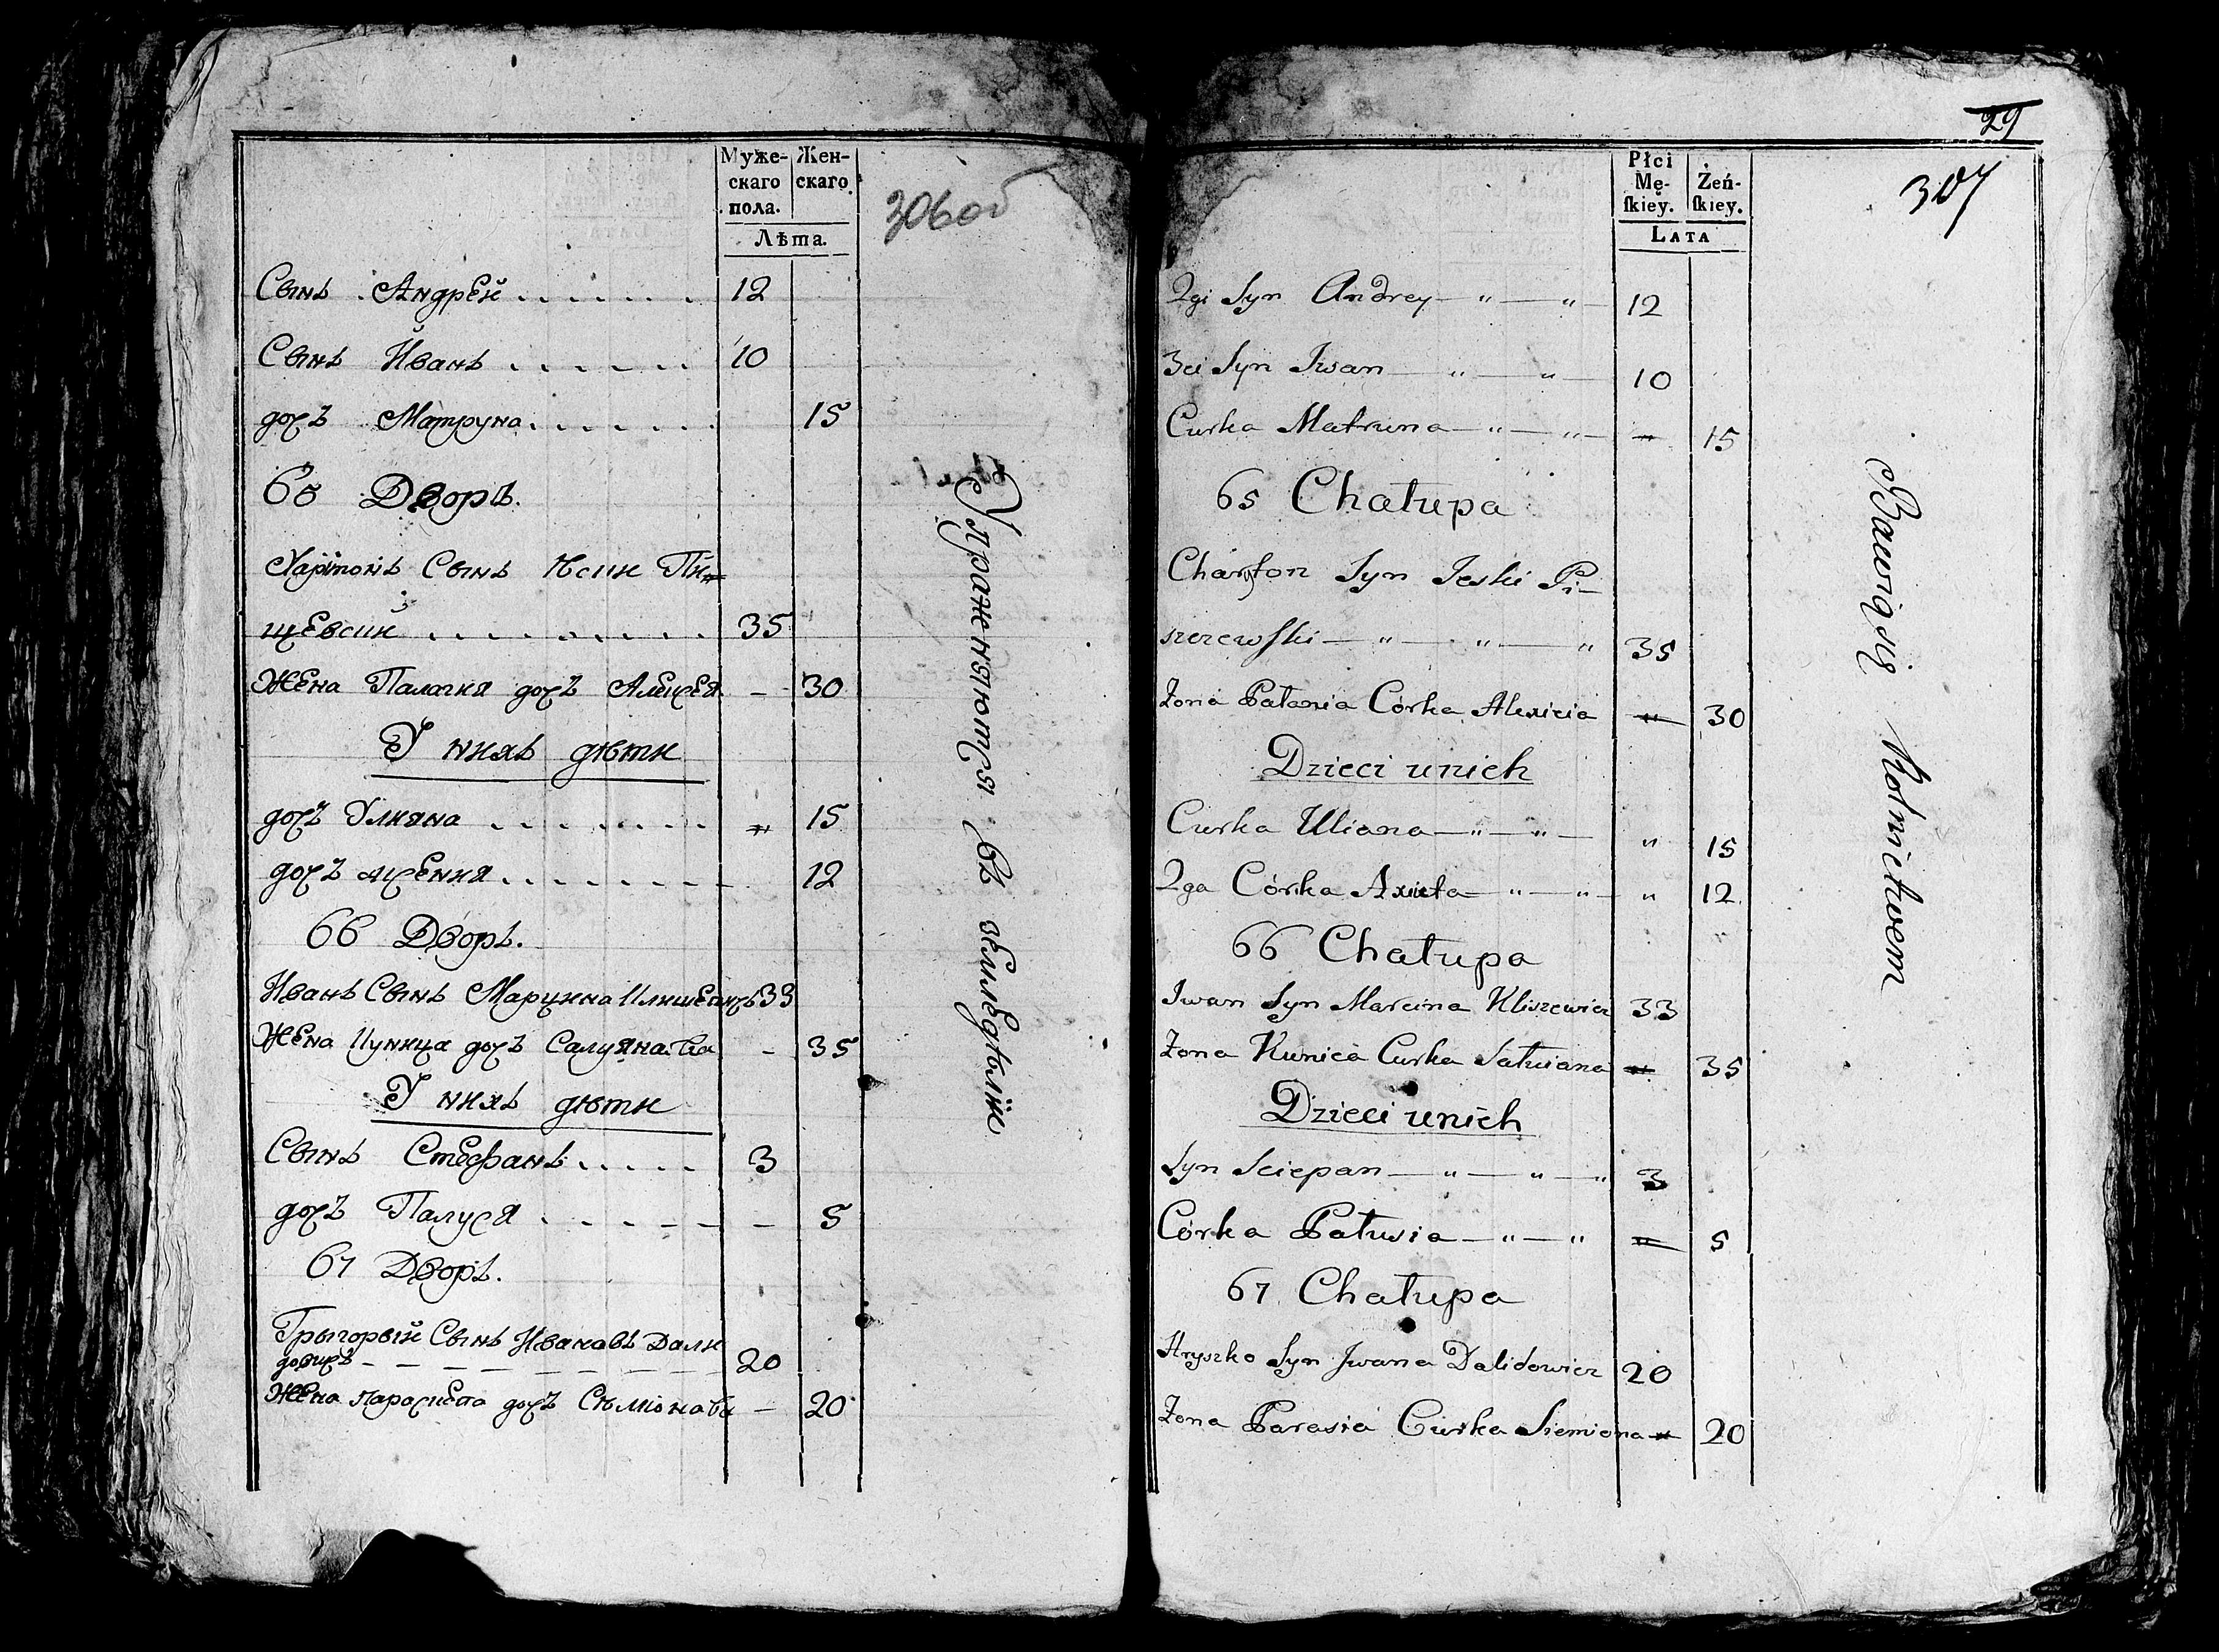 Муже- Жен-
скаго скаго.
пола.
Лѣта.
306об
Сынъ Андрей . . . . . . 12
Сынъ Иванъ . . . . . . 10
дочъ Матруна . . . . . . 15
65 Дворъ.
Харитонъ Сынъ Пи-
щевски . . . . . . . . 35
Жена Палагия дочъ Алексея - 30
У нихъ дѣти
дочъ Улияна . . . . . . . 〃 15
дочъ . . . . . . . 12
66 Дворъ.
Иванъ Сынъ Марцина Клишевичъ 33
Жена Куница дочъ - 35
У нихъ дѣти
Сынъ Стефанъ . . . . . 3
дочъ Палуся . . . . . - - 5
67 Дворъ.
Грыгорый Сынъ Ивановъ Дали
довичъ - - - - - - - 20
Жена дочъ Сѣмионова - 20
Упражняются въ земледѣлии
29
307
Płci
Mę- Żeń-
ſkiey. ſkiey.
LATA
2gi Syn Andrey — " — " — 12
3ci Syn Iwan — " — " — 10
Curka Matruna — " — " — " 15
65 Chałupa
Charyton Syn Jeski Pi-
szczewſki — " — " — " 35
Żona Pałazia Córka Alexieia " 30
Dzieci unich
Curka Uliana — " — " — " 15
2ga Córka Axieta — " — " — " 12
66 Chałupa
Iwan Syn Marcina Kliszewicz 33
Żona Kunica Curka Sałwiana " 35
Dzieci unich
Syn Sciepan — " — " — " 3
Córka Pałusia — " — " " 5
67 Chałupa
Hryszko Syn Jwana Dalidowicz 20
Żona Parasia Curka Siemiona " 20
Bawią się Rolnictwem